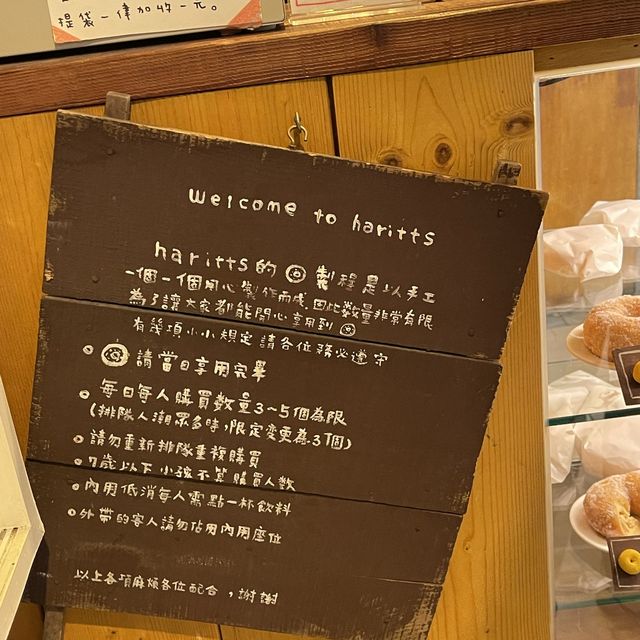 提袋一律加收一元。
welcome to haritts
haritts的 製程是以手工
一個一個用心製作而成,因此數量非常有限
為了讓大家都能開心享用到
有幾項小小規定請各位務必遵守
請當日享用完畢
每日每人購買數量3~5個為限
(排隊人潮眾多時,限定變更為3個)
請勿重新排隊重複購買
7歲以下小孩不算購買人數
內用低消每人需點一杯飲料
外帶的客人請勿佔用內用座位
以上各項麻煩各位配合,謝謝